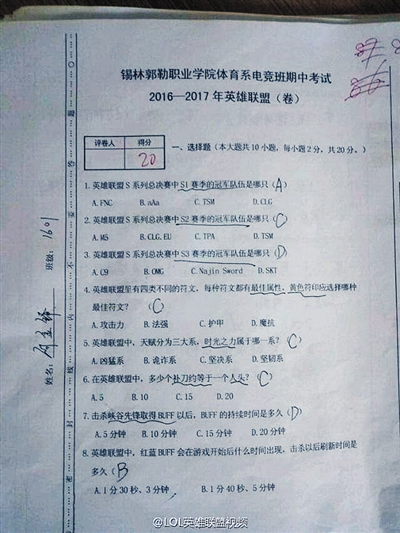 锡林郭勒职业学院体育系电竞班期中考试
2016—2017 年英雄联盟（卷）
评卷人 得分
20
一、选择题（本大题共 10 小题，每小题 2 分，共 20 分。）
1. 英雄联盟 S 系列总决赛中 S1 赛季的冠军队伍是哪只（A）
A. FNC B. aAa C. TSM D. CLG
2. 英雄联盟 S 系列总决赛中 S2 赛季的冠军队伍是哪只（C）
A. M5 B. CLG.EU C. TPA D. TSM
3. 英雄联盟 S 系列总决赛中 S3 赛季的冠军队伍是哪只（D）
A. C9 B. OMG C. Najin Sword D. SKT
4. 英雄联盟里有四类不同的符文，每种符文都有最佳属性，黄色符印应选择哪种
最佳符文？（C）
A. 攻击力 B. 法强 C. 护甲 D. 魔抗
5. 英雄联盟中，天赋分为三大系，时光之力属于哪一系？（C）
A. 凶猛系 B. 诡诈系 C. 坚决系 D. 坚韧系
6. 在英雄联盟中，多少个补刀约等于一个人头？（C）
A. 5 B. 10 C. 15 D. 20
7. 击杀峡谷先锋取得 BUFF 以后，BUFF 的持续时间是多久（D）
A. 5 分钟 B. 10 分钟 C. 15 分钟 D. 20 分钟
8. 英雄联盟中，红蓝 BUFF 会在游戏开始后什么时间出现，击杀以后刷新时间是
多久（B
A. 1 分 30 秒、3 分钟 B. 1 分 40 秒、5 分钟
班级：1601
姓名：
@LOL英雄联盟视频